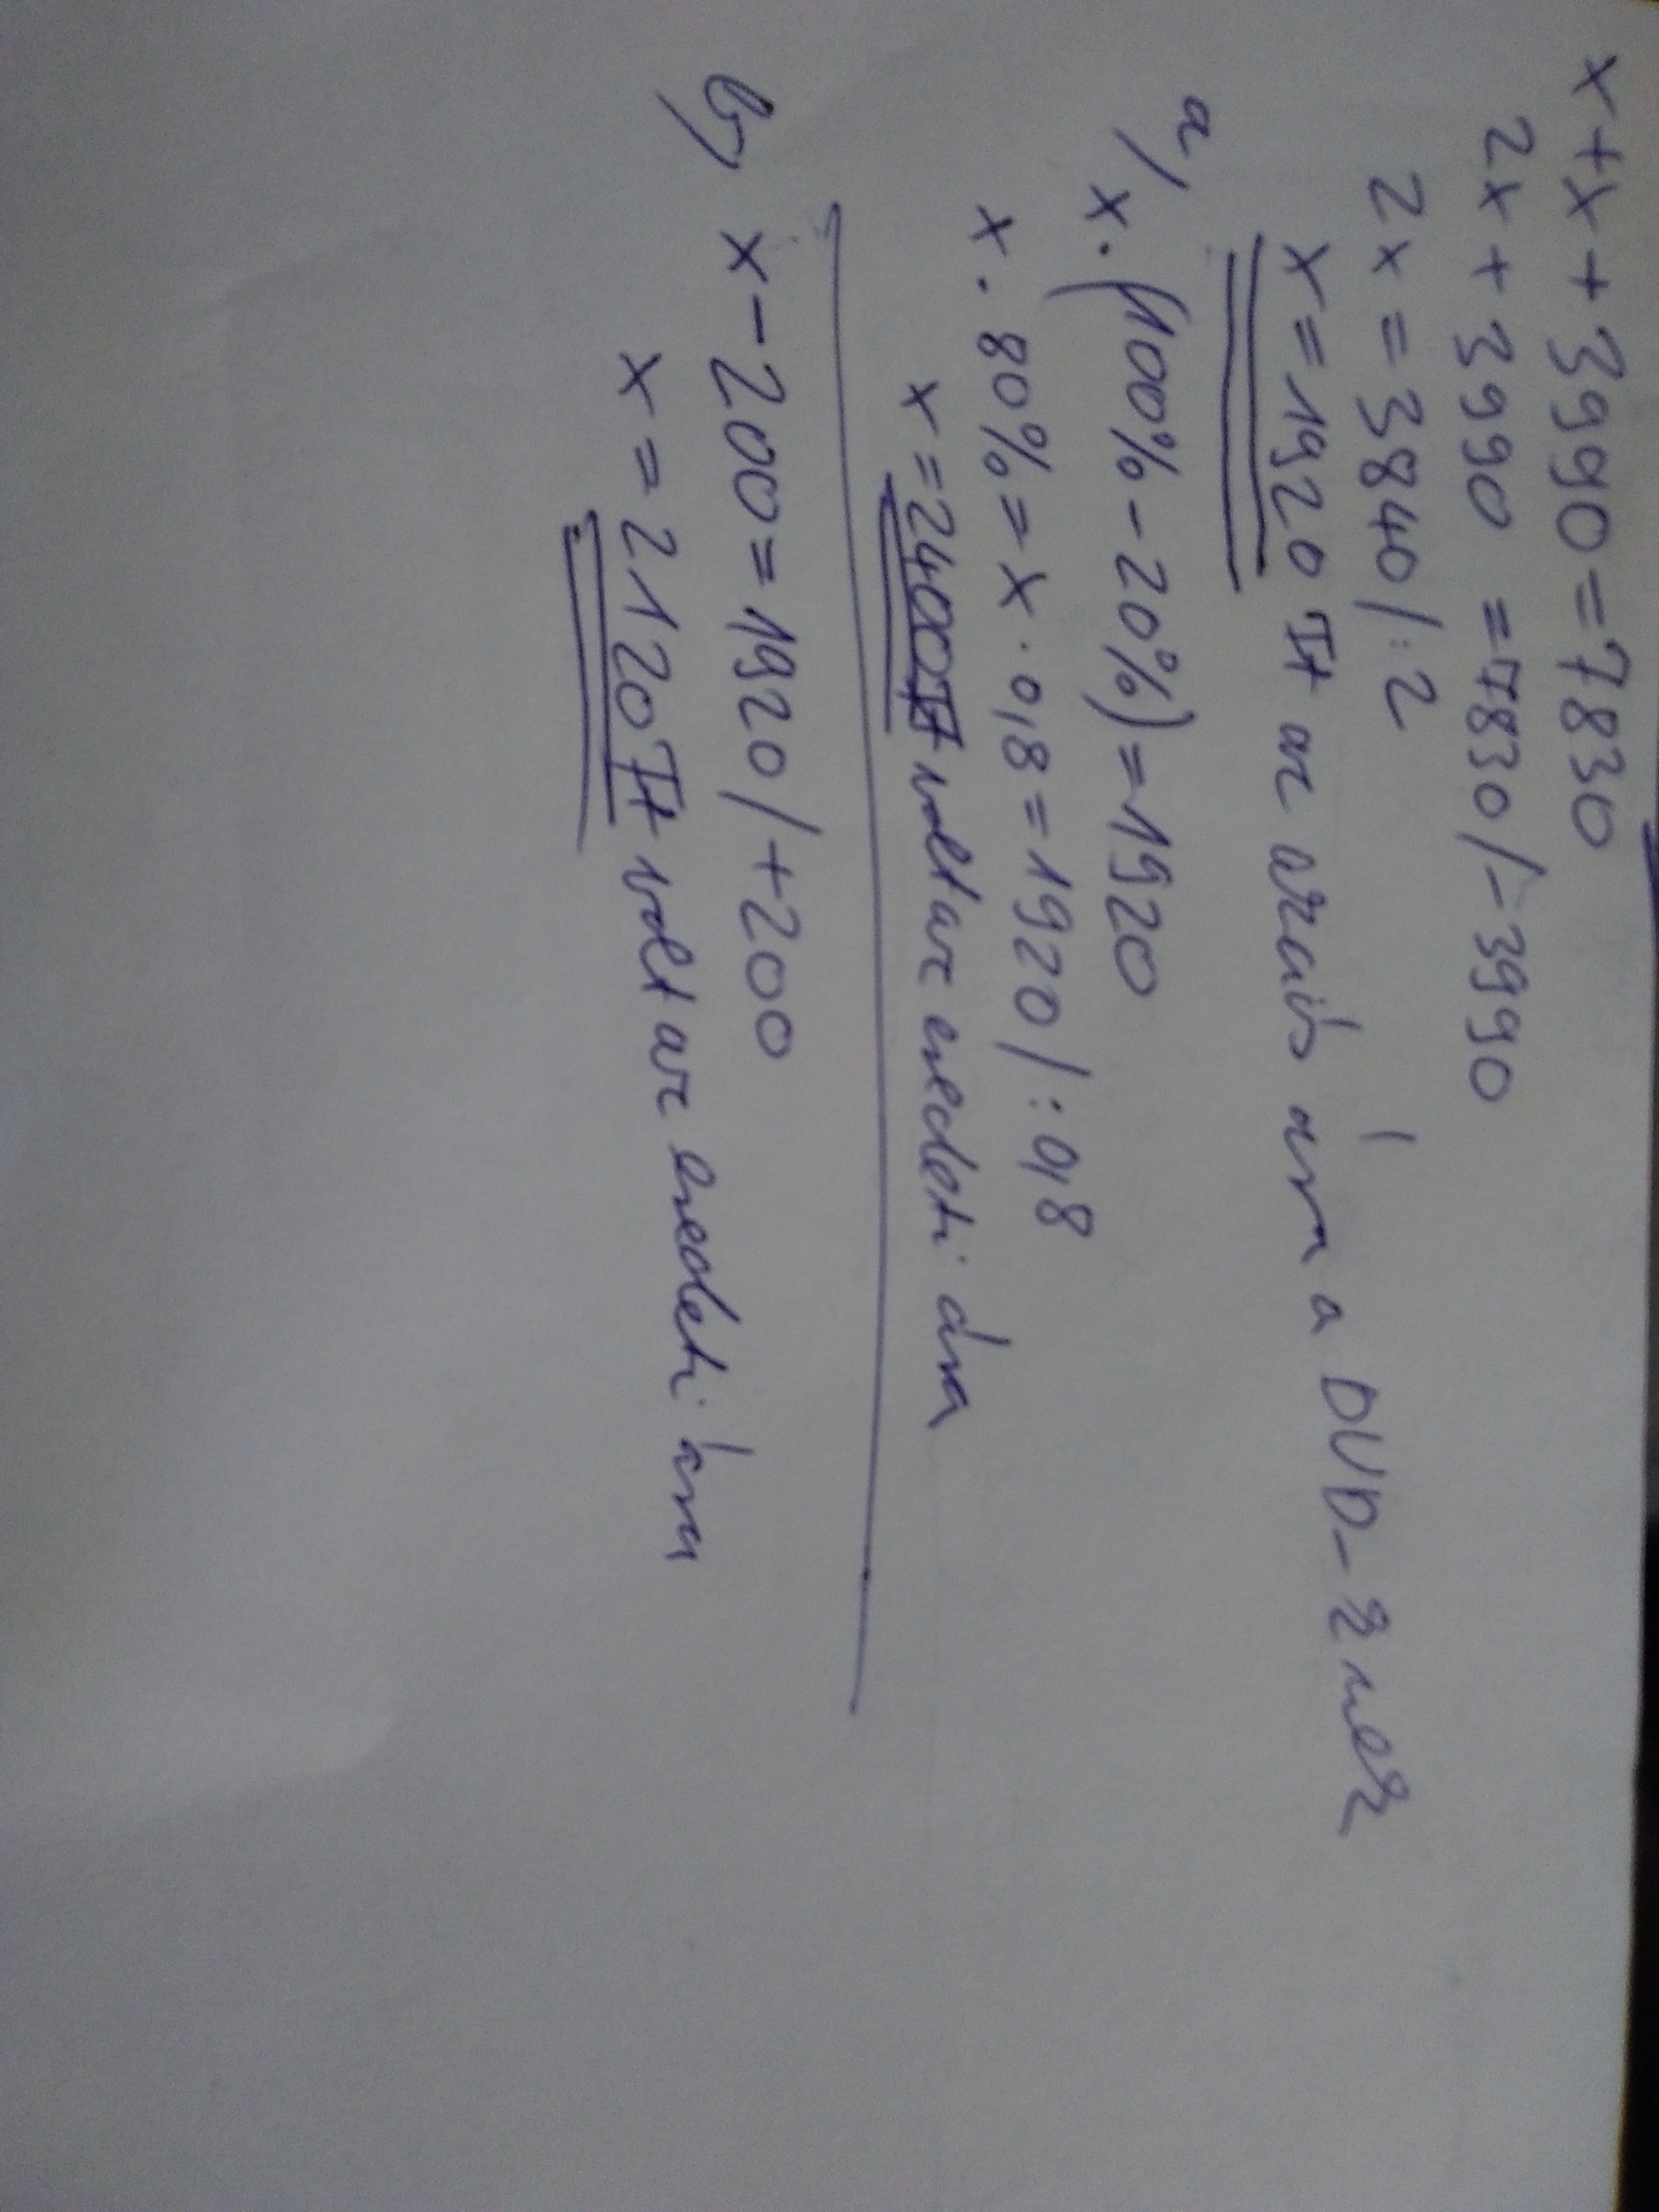 x+x+3990=7830
2x+3990=7830/-3990
2x=3840/:2
x=1920 Ft az azaiś ara a DVD-knek
a/ x·(100%-20%)=1920
x·80%=x·0,8=1920/:0,8
x=2400Ft volt az eredeti ára
b, x-200=1920/+200
x=2120Ft volt az eredeti ára